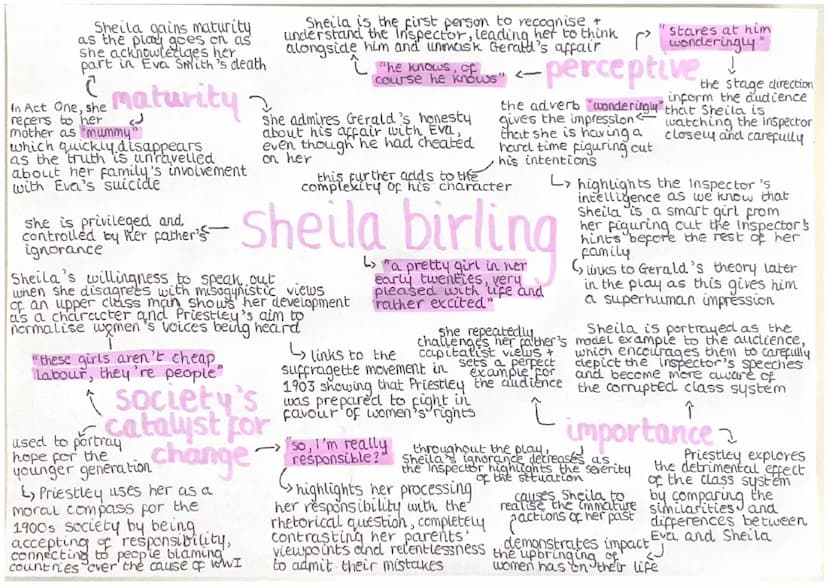 Sheila gains maturity
as the play goes on as
she acknowledges her
part in Eva Smith's death
maturity
In Act One, she
refers to her
mother as "mummy"
which quickly disappears
as the truth is unravelled
about her family's involvement
with Eva's suicide
she admires Gerald's honesty
about his affair with Eva,
even though he had cheated
on her
Sheila is the first person to recognise +
understand the Inspector, leading her to think
alongside him and unmask Gerald's affair
"he knows, of
course he knows"
perceptive
"stares at him
wonderingly"
the stage direction
inform the audience
that Sheila is
watching the Inspector
closely and carefully
the adverb "wonderingly"
gives the impression
that she is having a
hard time figuring out
his intentions
this further adds to the
complexity of his character
highlights the Inspector's
intelligence as we know that
Sheila is a smart girl from
her figuring out the Inspector's
hints before the rest of her
family
links to Gerald's theory later
in the play as this gives him
a superhuman impression
sheila birling
she is privileged and
controlled by her father's
ignorance
"a pretty girl in her
early twenties, very
pleased with life and
rather excited"
Sheila's willingness to speak out
when she disagrees with misogynistic views
of an upper class man shows her development
as a character and Priestley's aim to
normalise women's voices being heard
"these girls aren't cheap
labour, they're people"
links to the
suffragette movement in
1903 showing that Priestley
was prepared to fight in
favour of women's rights
society's
catalyst for
change
used to portray
hope for the
younger generation
Priestley uses her as a
moral compass for the
1900s society by being
accepting of responsibility,
connecting to people blaming
countries over the cause of WWI
"so, I'm really
responsible?"
highlights her processing
her responsibility with the
rhetorical question, completely
contrasting her parents'
viewpoints and relentlessness
to admit their mistakes
she repeatedly
challenges her father's
capitalist views +
sets a perfect
example for
the audience
Sheila is portrayed as the
model example to the audience,
which encourages them to carefully
depict the Inspector's speeches
and become more aware of
the corrupted class system
importance
throughout the play,
Sheila's ignorance decreases as
the Inspector highlights the severity
of the situation
causes Sheila to
realise the immature
actions of her past
demonstrates impact
the upbringing of
women has on their life
Priestley explores
the detrimental effect
of the class system
by comparing the
similarities and
differences between
Eva and Sheila